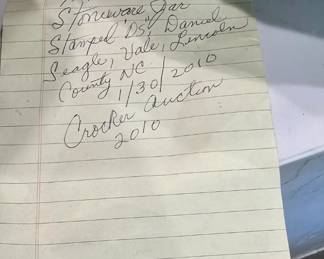 Stoneware Jar
Stamped "DS", Daniel
Seagle, Vale, Lincoln
County NC
1/30/2010
Crocker Auction
2010